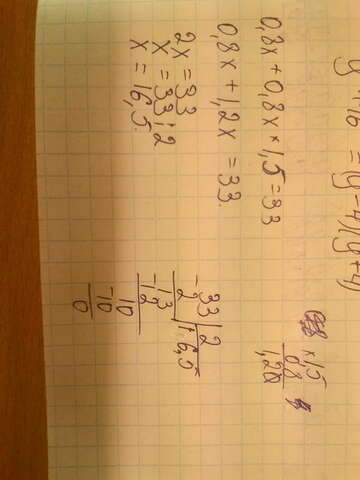 y 16 = (y-4)(y+4)
0,8x + 0,8x × 1,5 = 33
0,8x + 1,2x = 33
2x = 33
x = 33 : 2
x = 16,5.
× 1,5
0,8
1,20
- 33 | 2
2 | 16,5
- 13
12
10
- 10
0